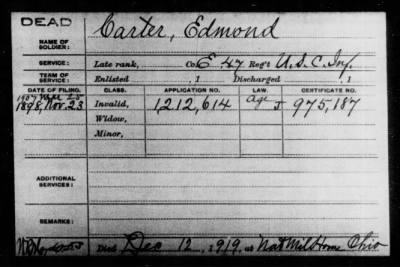 DEAD
NAME OF SOLDIER: Carter, Edmond
SERVICE: Late rank, Co. E 47 Reg't U.S.C. Inf.
TERM OF SERVICE: Enlisted , 1 Discharged , 1
DATE OF FILING. CLASS. APPLICATION NO. LAW. CERTIFICATE NO.
1907 25 Age
1898, Nov. 23 Invalid, 1,212,614 J 975,187
Widow,
Minor,
ADDITIONAL SERVICES:
REMARKS:
Died Dec 12, 1919, at Nat Mil Home Ohio